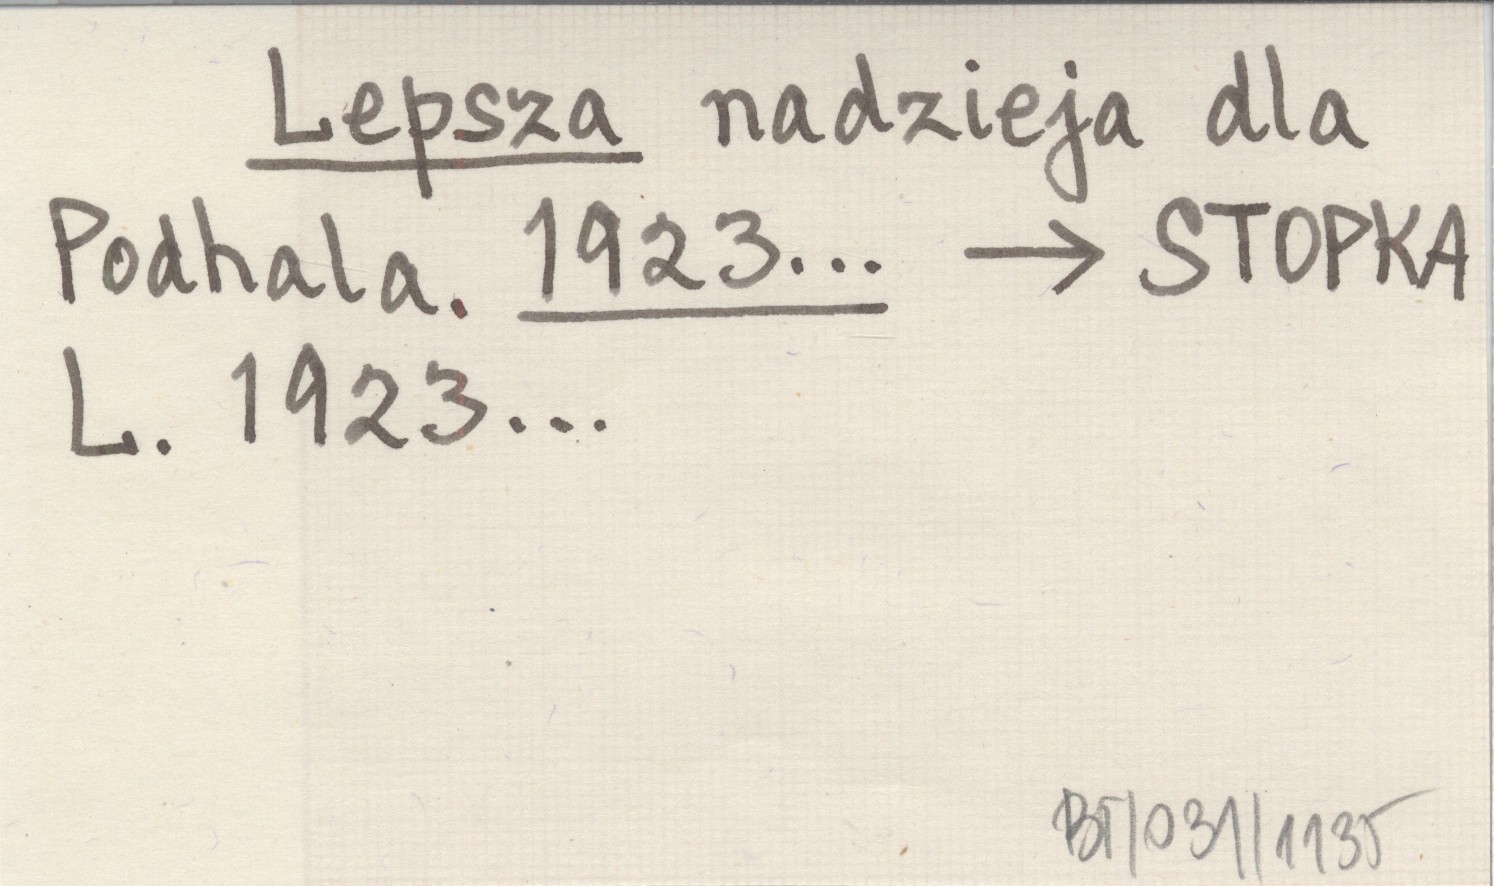 Lepsza nadzieja dla
Podhala. 1923... → STOPKA
L. 1923...
BT/031/1135